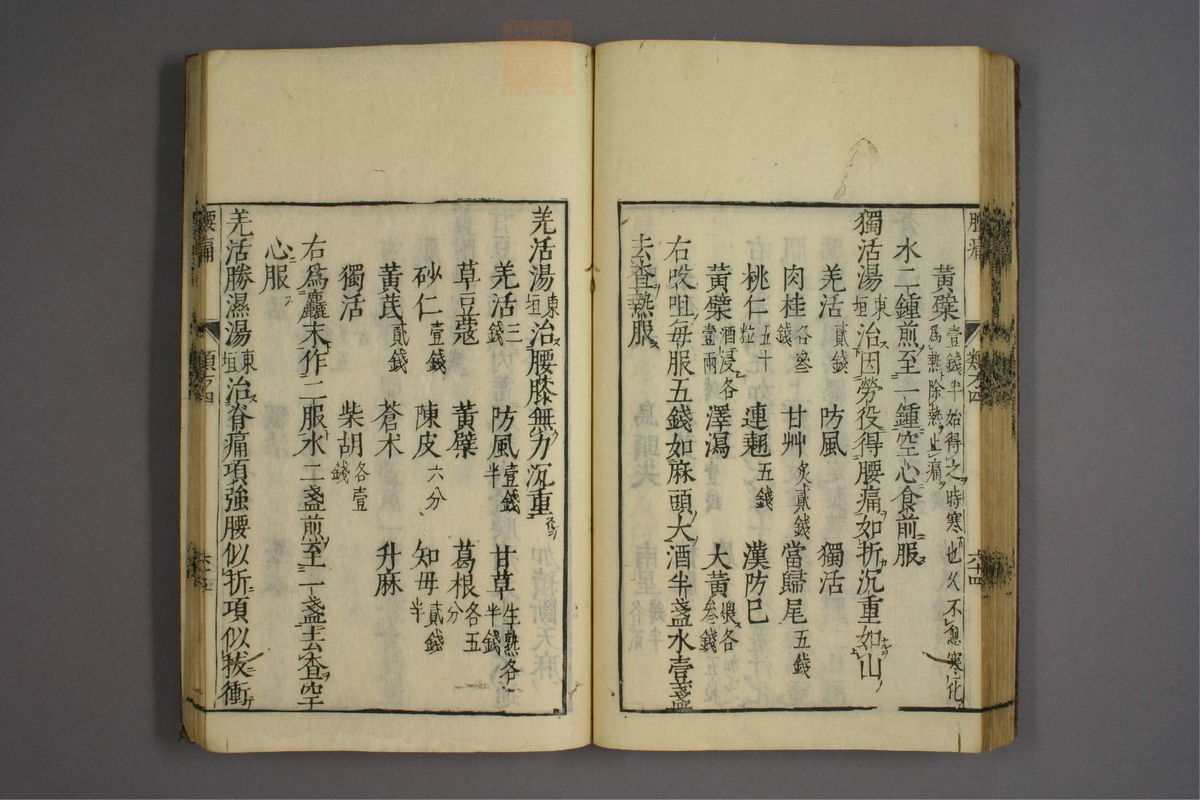 腰痛
類方四
六十四
黃蘗壹錢半始得之時寒也久不愈寒化爲熱除熱止痛
水二鍾煎至一鍾空心食前服
獨活湯東垣治因勞役得腰痛如折沉重如山
羌活貳錢 防風 獨活
肉桂各參錢 甘艸炙貳錢 當歸尾五錢
桃仁五十粒 連翹五錢 漢防巳
黃蘗酒浸各壹兩 澤瀉 大黃煨各參錢
右㕮咀每服五錢如麻頭大酒半盞水壹盞
去查熱服
羌活湯東垣治腰膝無力沉重
羌活三錢 防風壹錢半 甘草生熟各半錢
草豆蔻 黃蘗 葛根各五分
砂仁壹錢 陳皮六分 知母貳錢半
黃芪貳錢 蒼朮 升麻
獨活 柴胡各壹錢
右爲麤末作二服水二盞煎至一盞去查空
心服
羌活勝濕湯東垣治脊痛項強腰似折項似拔衝
腰痛
類方四